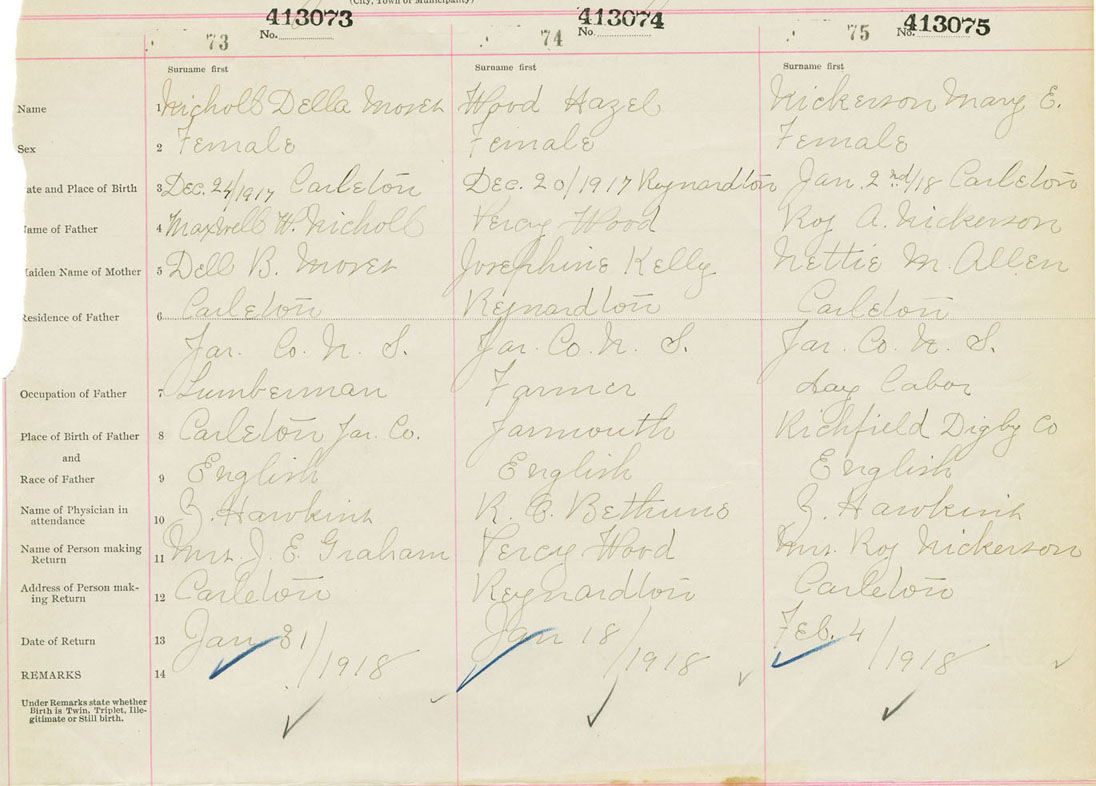 (City, Town or Municipality)
413073 413074 413075
73 No. 74 No. 75 No.
Surname first Surname first Surname first
Name 1 Nicholl Della Moses Wood Hazel Nickerson Mary E.
Sex 2 Female Female Female
ate and Place of Birth 3 Dec. 24/1917 Carleton Dec. 20/1917 Reynardton Jan. 2nd/18 Carleton
ame of Father 4 Maxwell H. Nicholl Percy Wood Roy A. Nickerson
aiden Name of Mother 5 Dell B. Moses Josephine Kelly Nettie M. Allen
esidence of Father 6 Carleton Reynardton Carleton
Yar. Co. N. S. Yar. Co. N. S. Yar. Co. N. S.
Occupation of Father 7 Lumberman Farmer day Labor
Place of Birth of Father 8 Carleton Yar. Co. Yarmouth Richfield Digby Co
and
Race of Father 9 English English English
Name of Physician in attendance 10 Z. Hawkins R. C. Bethune Z. Hawkins
Name of Person making Return 11 Mrs. J. E. Graham Percy Wood Mrs. Roy Nickerson
Address of Person mak-ing Return 12 Carleton Reynardton Carleton
Date of Return 13 Jan 31/1918 Jan 18/1918 Feb. 4/1918
REMARKS 14
Under Remarks state whether
Birth is Twin, Triplet, Ille-
gitimate or Still birth.